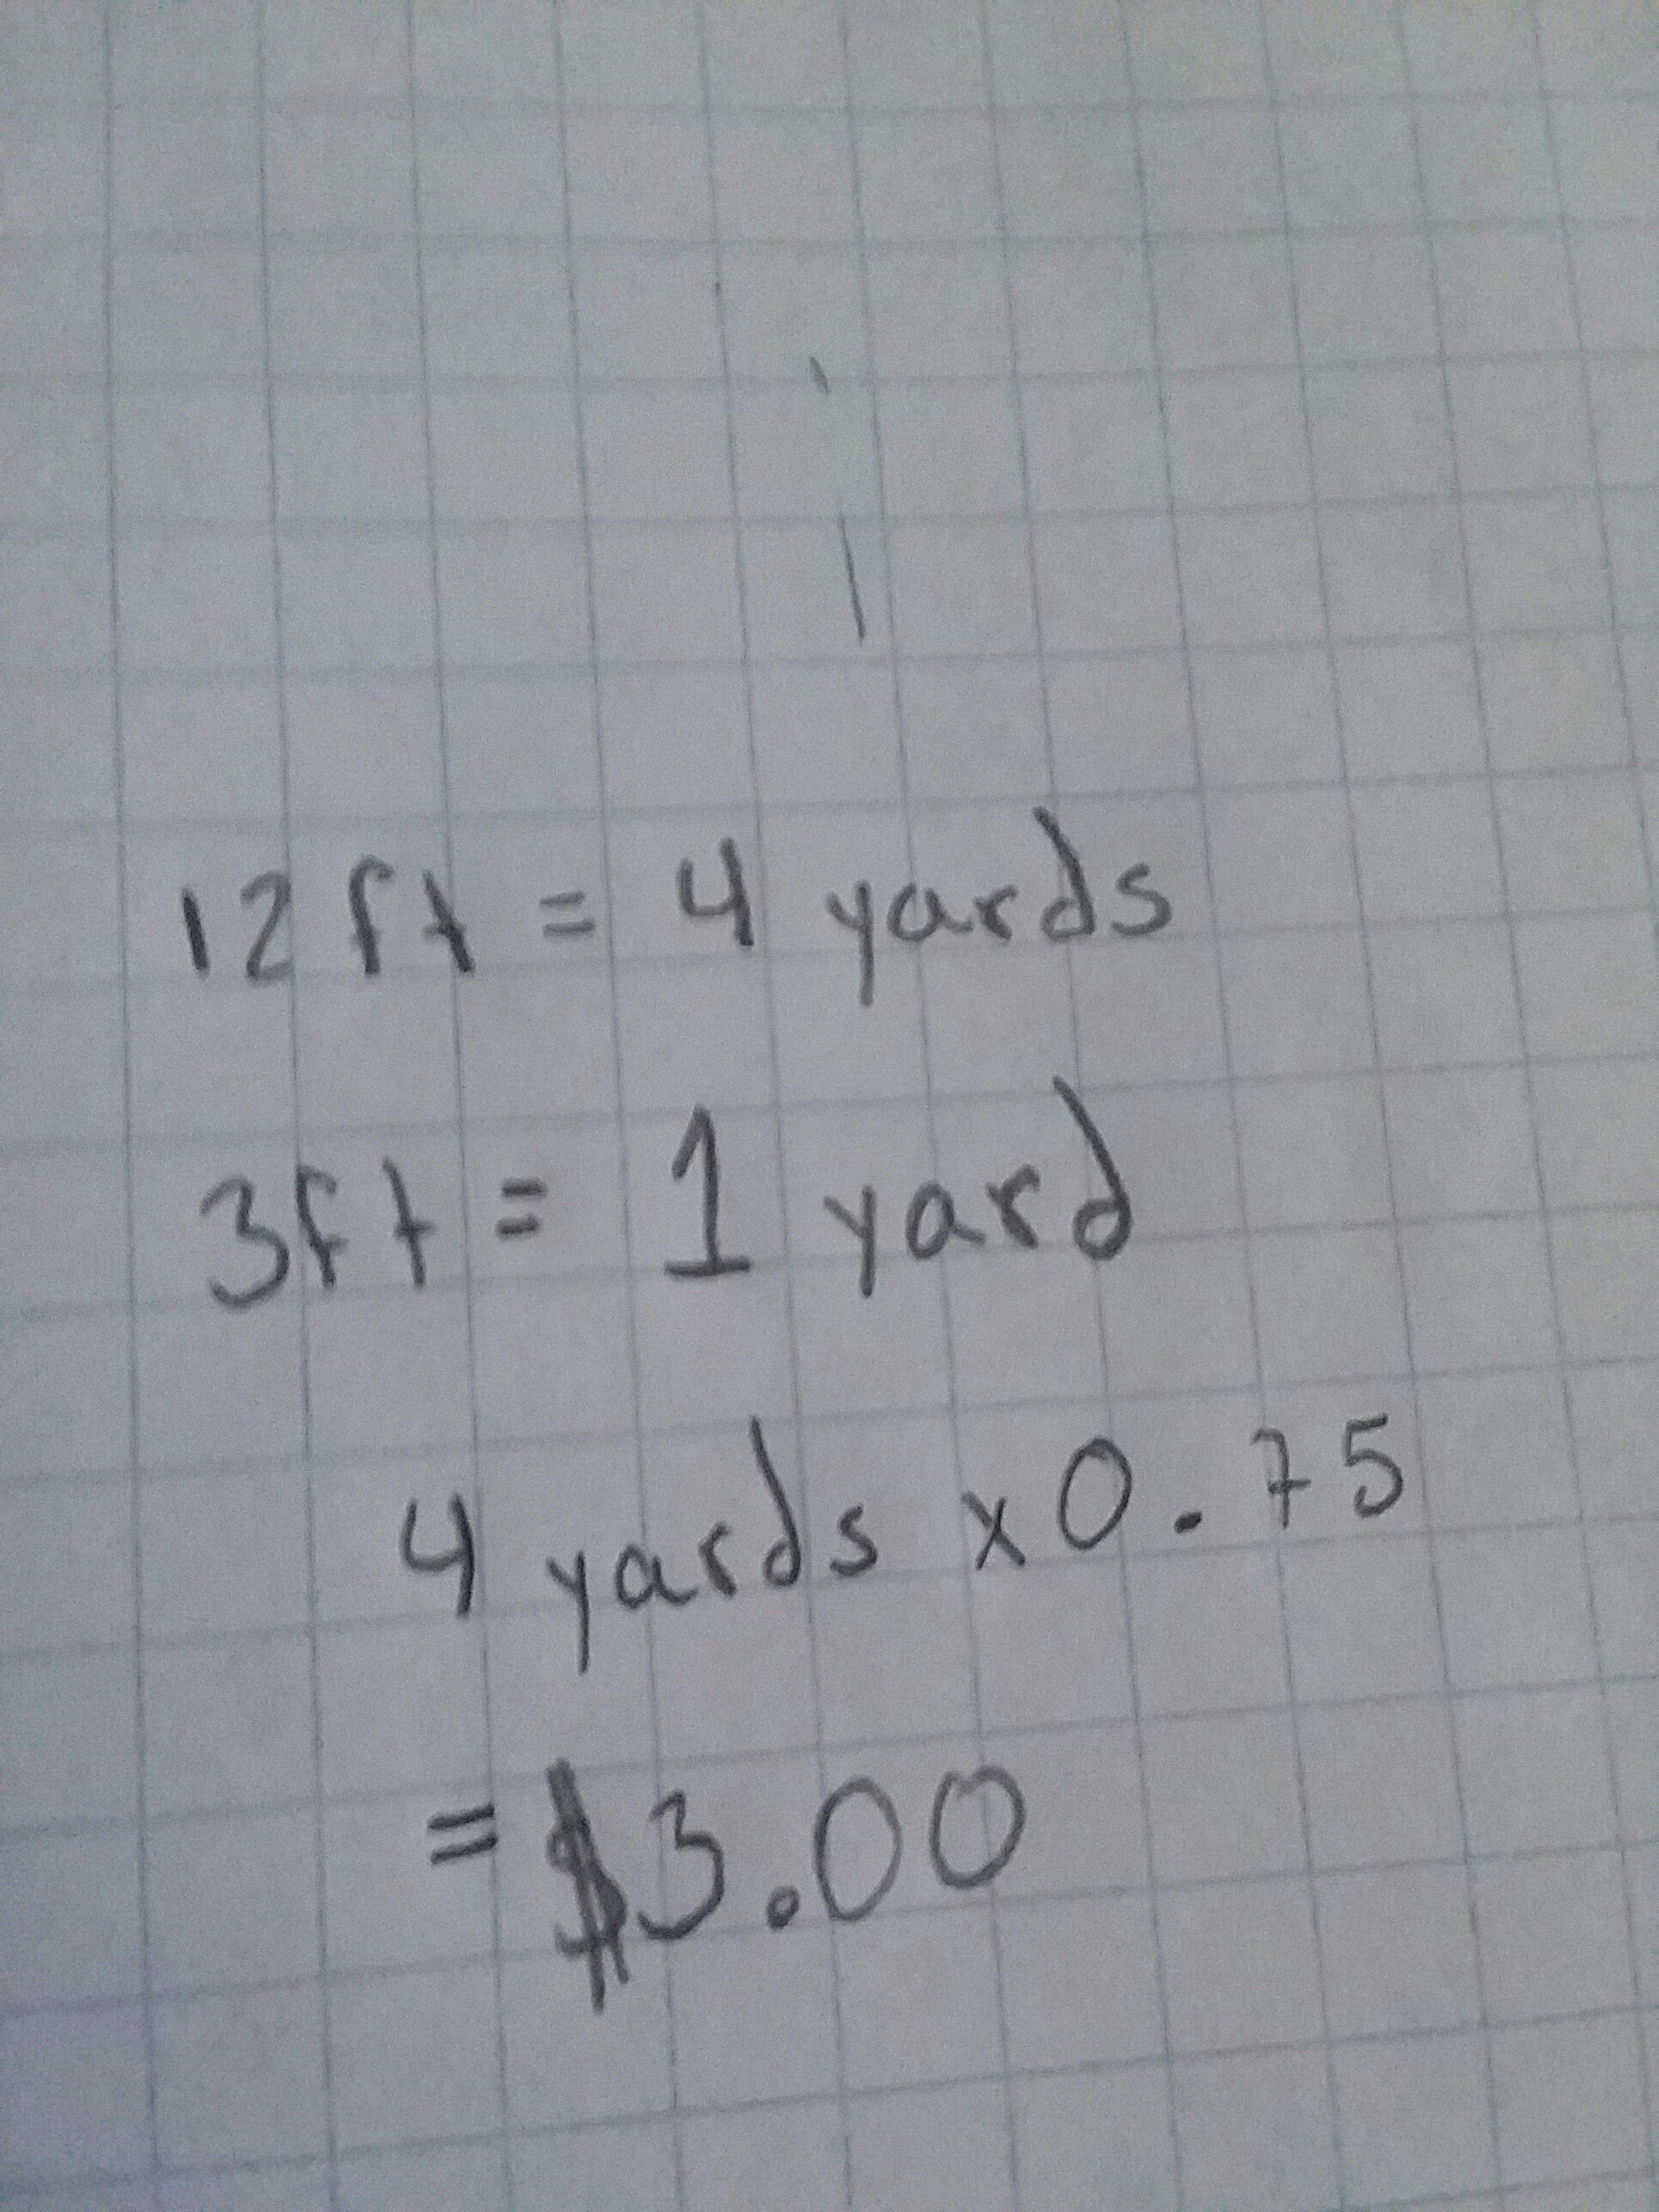 12ft = 4 yards
3ft = 1 yard
4 yards x 0.75
= $3.00